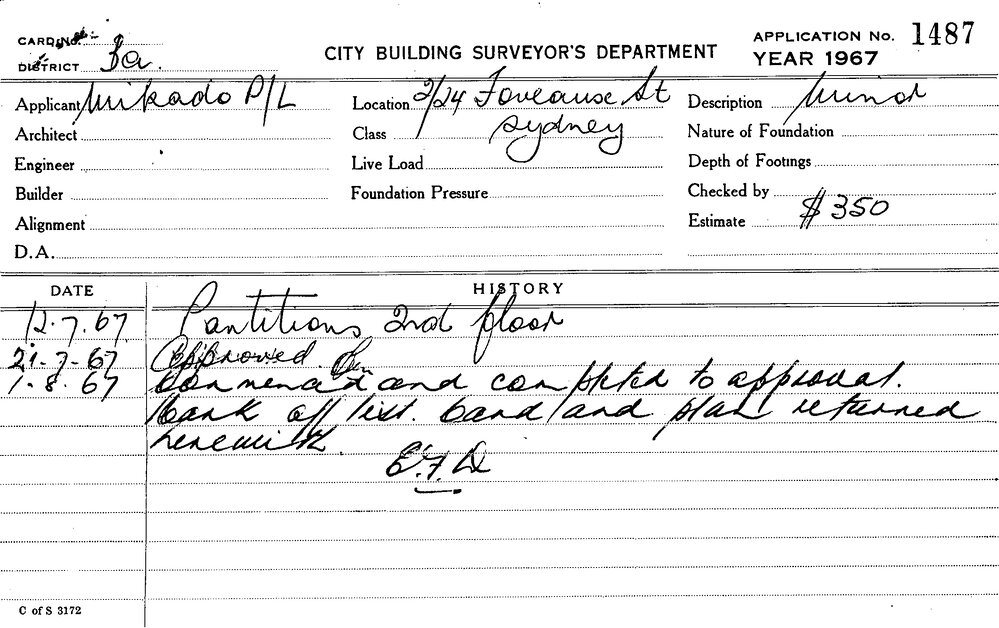 CARD No.
DISTRICT 3a.
CITY BUILDING SURVEYOR'S DEPARTMENT
APPLICATION No. 1487
YEAR 1967
Applicant Mikado P/L
Location 2/24 Foveause St
Sydney
Description Minor
Architect
Class
Nature of Foundation
Engineer
Live Load
Depth of Footings
Builder
Foundation Pressure
Checked by
Alignment
Estimate $350
D.A.
DATE HISTORY
12.7.67 Partitions 2nd floor
21-7-67 Approved
1-8.67 Commenced and completed to approval.
Mark off list. Card and plan returned
herewith.
E.F.D
C of S 3172